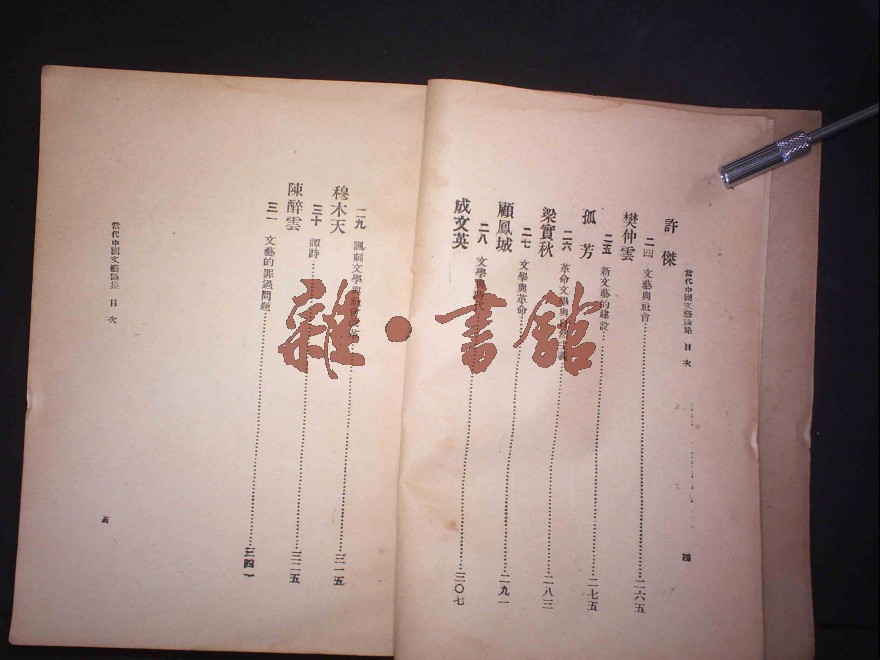 當代中國文藝論集 目次
許傑
二四 文藝與社會……二六五
樊仲雲
二五 新文藝的建設……二七五
孤芳
二六 革命文學與主義……二八三
梁實秋
二七 文學與革命……二九一
顧鳳城
二八 文學時代……三〇七
成文英
四
二九 諷刺文學與社會改革……三一五
穆木天
三十 譚詩……三二五
陳醉雲
三一 文藝的罪過問題……三四一
當代中國文藝論集 目次
五
雜·書館